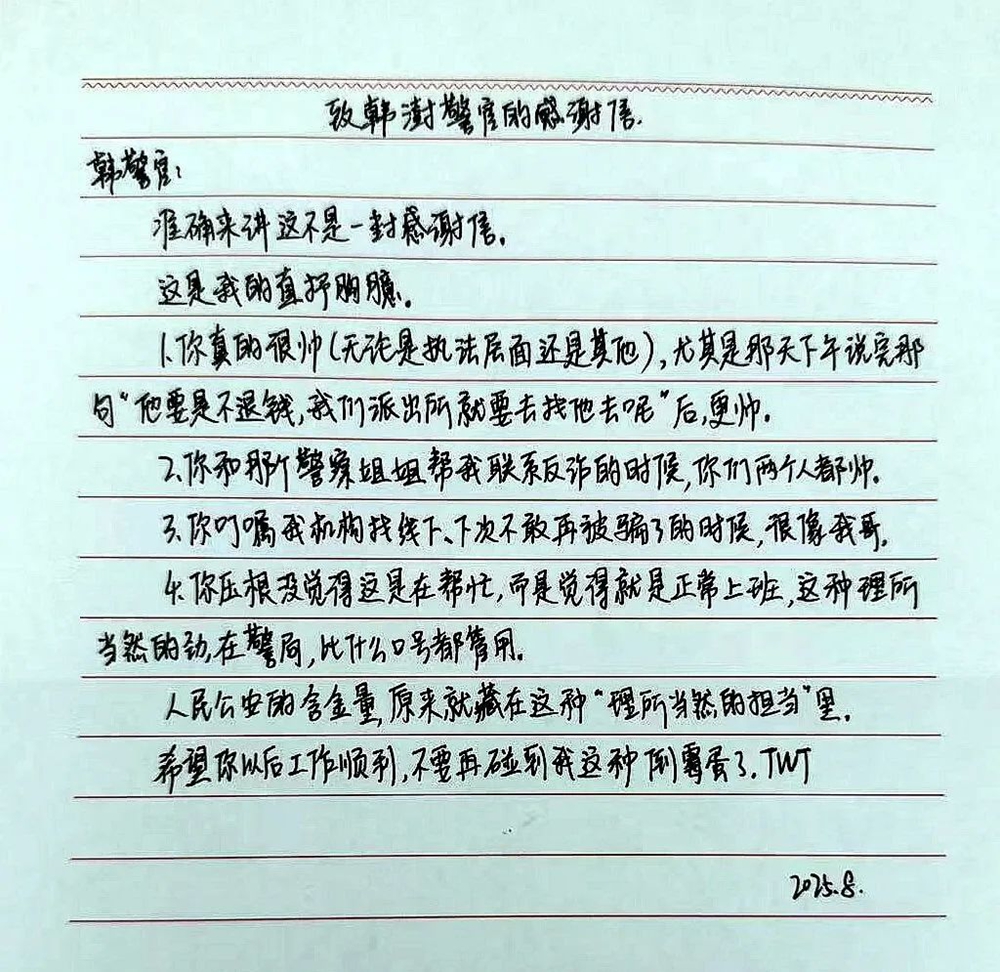 致韩澍警官的感谢信.
韩警官:
准确来讲这不是一封感谢信。
这是我的直抒胸臆。
1.你真的很帅(无论是执法层面还是其他),尤其是那天下午说完那
句“他要是不退钱,我们派出所就要去找他去呢”后,更帅。
2.你和那个警察姐姐帮我联系反诈的时候,你们两个人都帅.
3.你叮嘱我机构找线下、下次不敢再被骗了的时候,很像我哥.
4.你压根没觉得这是在帮忙,而是觉得就是正常上班,这种理所
当然的劲,在警局,比什么口号都管用.
人民公安的含金量,原来就藏在这种“理所当然的担当”里.
希望你以后工作顺利,不要再碰到我这种倒霉蛋了.TWT
2025.8.